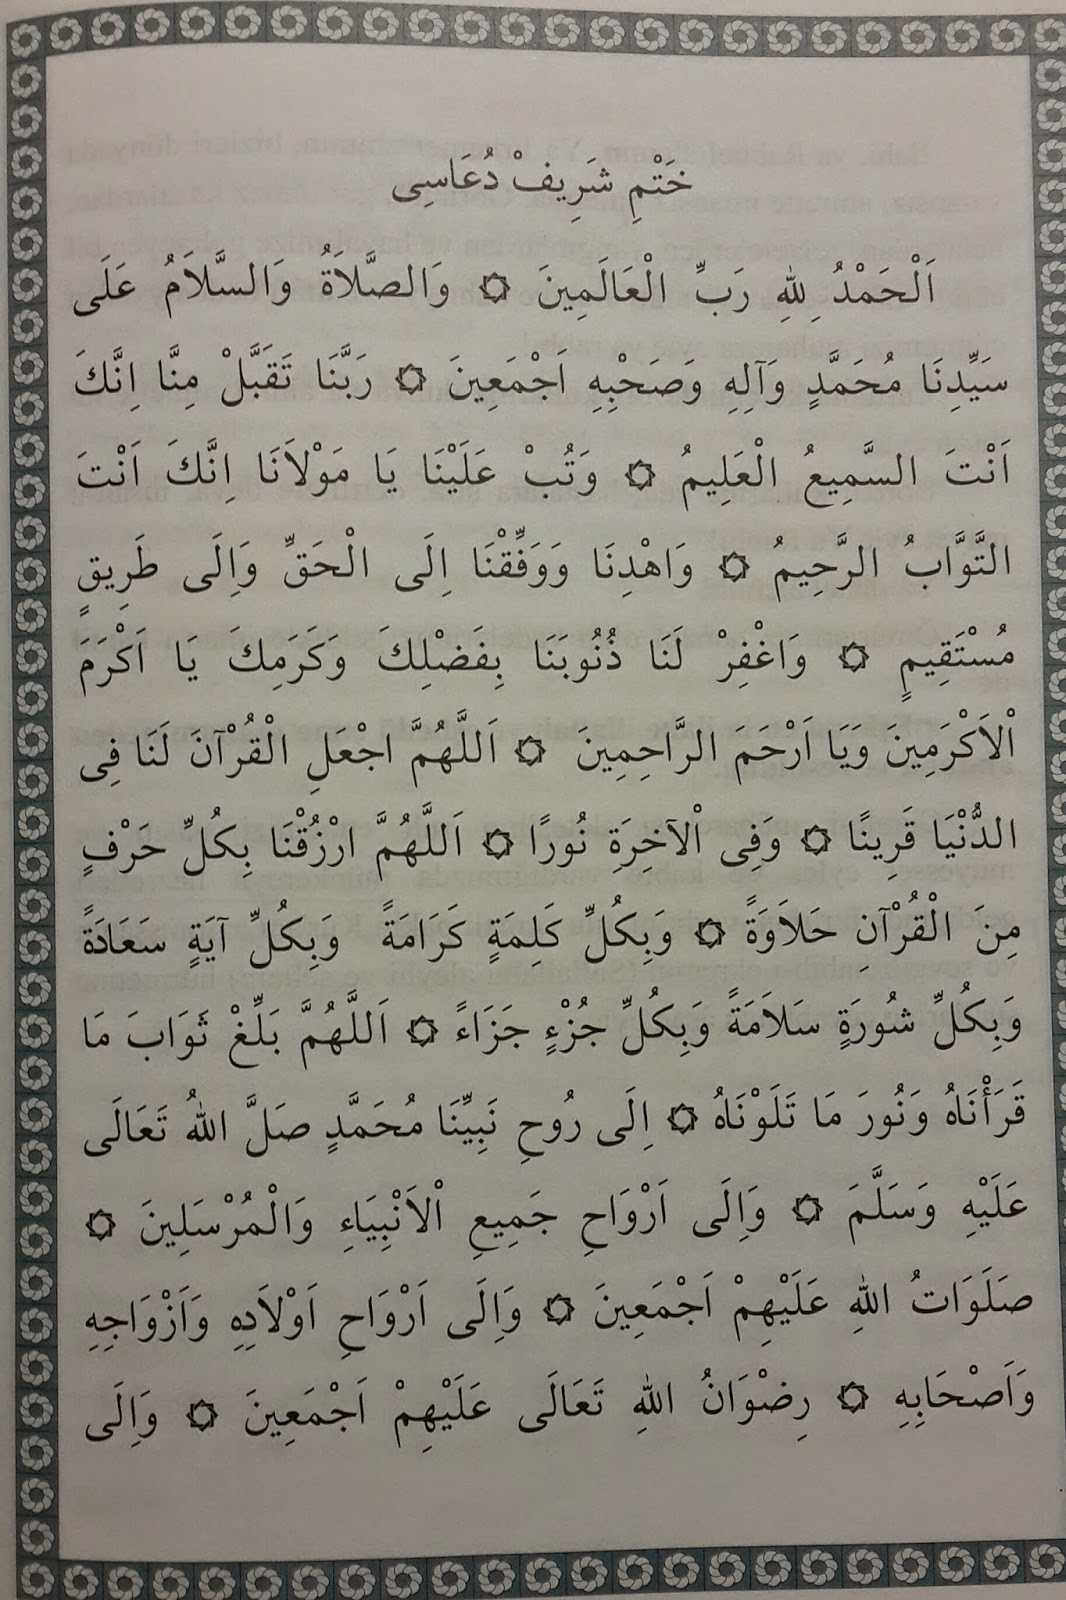 خَتْمِ شَرِيفْ دُعَاسِى
اَلْحَمْدُ لِلهِ رَبِّ الْعَالَمِينَ ۞ وَالصَّلاَةُ وَالسَّلاَمُ عَلَى
سَيِّدِنَا مُحَمَّدٍ وَآلِهِ وَصَحْبِهِ اَجْمَعِينَ ۞ رَبَّنَا تَقَبَّلْ مِنَّا اِنَّكَ
اَنْتَ السَّمِيعُ الْعَلِيمُ ۞ وَتُبْ عَلَيْنَا يَا مَوْلاَنَا اِنَّكَ اَنْتَ
التَّوَّابُ الرَّحِيمُ ۞ وَاهْدِنَا وَوَفِّقْنَا اِلَى الْحَقِّ وَاِلَى طَرِيقٍ
مُسْتَقِيمٍ ۞ وَاغْفِرْ لَنَا ذُنُوبَنَا بِفَضْلِكَ وَكَرَمِكَ يَا اَكْرَمَ
اْلاَكْرَمِينَ وَيَا اَرْحَمَ الرَّاحِمِينَ ۞ اَللَّهُمَّ اجْعَلِ الْقُرْآنَ لَنَا فِى
الدُّنْيَا قَرِينًا ۞ وَفِى اْلآخِرَةِ نُورًا ۞ اَللَّهُمَّ ارْزُقْنَا بِكُلِّ حَرْفٍ
مِنَ الْقُرْآنِ حَلاَوَةً ۞ وَبِكُلِّ كَلِمَةٍ كَرَامَةً وَبِكُلِّ آيَةٍ سَعَادَةً
وَبِكُلِّ شُورَةٍ سَلاَمَةً وَبِكُلِّ جُزْءٍ جَزَاءً ۞ اَللَّهُمَّ بَلِّغْ ثَوَابَ مَا
قَرَأْنَاهُ وَنُورَ مَا تَلَوْنَاهُ ۞ اِلَى رُوحِ نَبِيِّنَا مُحَمَّدٍ صَلَّ اللهُ تَعَالَى
عَلَيْهِ وَسَلَّمَ ۞ وَاِلَى اَرْوَاحِ جَمِيعِ اْلاَنْبِيَاءِ وَالْمُرْسَلِينَ ۞
صَلَوَاتُ اللهِ عَلَيْهِمْ اَجْمَعِينَ ۞ وَاِلَى اَرْوَاحِ اَوْلاَدِهِ وَاَزْوَاجِهِ
وَاَصْحَابِهِ ۞ رِضْوَانُ اللهِ تَعَالَى عَلَيْهِمْ اَجْمَعِينَ ۞ وَاِلَى